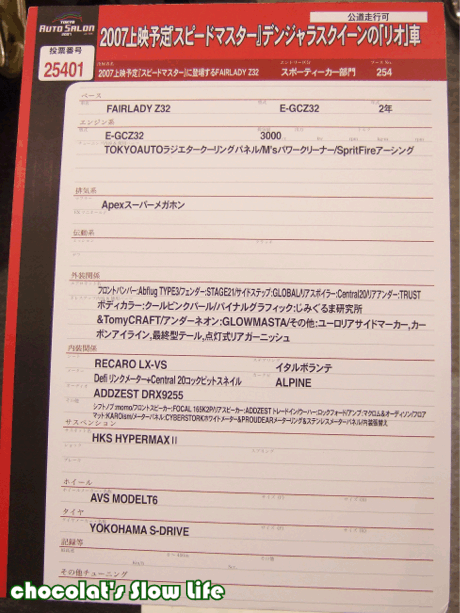 TOKYO
AUTO SALON
2007
公道走行可
2007上映予定『スピードマスター』デンジャラスクイーンの「リオ」車
投票番号
25401
2007上映予定『スピードマスター』に登場するFAIRLADY Z32
スポーティーカー部門
254
ベース
FAIRLADY Z32
E-GCZ32
2年
エンジン系
E-GCZ32
3000
TOKYOAUTOラジエタークーリングパネル/M'sパワークリーナー/SpritFireアーシング
排気系
Apexスーパーメガホン
伝動系
外装関係
フロントバンパー:Abflug TYPE3/フェンダー:STAGE21/サイドステップ:GLOBAL/リアスポイラー:Central20/リアアンダー:TRUST
ボディカラー:クールピンクパール/バイナルグラフィック:じみぐるま研究所
&TomyCRAFT/アンダーネオン:GLOWMASTA/その他:ユーロリアサイドマーカー,カー
ボンアイライン,最終型テール,点灯式リアガーニッシュ
内装関係
RECARO LX-VS
イタルボランテ
Defiリンクメーター+Central 20コックピットスネイル
ALPINE
ADDZEST DRX9255
シフトノブ:momo/フロントスピーカー:FOCAL 165K2P/リアスピーカー:ADDZESTトレードイン/ウーハー:ロックフォード/アンプ:マクロム&オーディソン/フロア
マット:KAROism/メーターパネル:CYBERSTORKホワイトメーター&PROUDEARメーターリング&ステンレスメーターパネル/内装張替え
サスペンション
HKS HYPERMAXⅡ
ホイール
AVS MODELT6
タイヤ
YOKOHAMA S-DRIVE
記録等
その他チューニング
chocolat's Slow Life